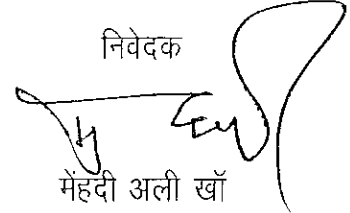 निवेदक
मेंहदी अली खॉ